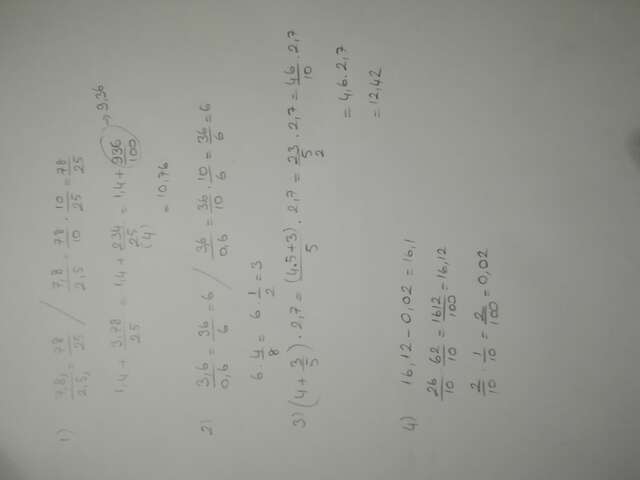 1) 7,8/2,5 = 78/25 / 7,8/2,5 = 78/10 · 10/25 = 78/25
1,4 + 3.78/25 = 1,4 + 234/25 (4) = 1,4 + 936/100 → 9,36
= 10,76
2) 3,6/0,6 = 36/6 = 6 / 36/0,6 = 36/10 · 10/6 = 36/6 = 6
6 · 4/8 = 6 · 1/2 = 3
3) (4 + 3/5) · 2,7 = (4.5+3)/5 · 2,7 = 23/5 · 2,7 = 46/10 · 2,7
2
= 4,6 . 2,7
= 12,42
4) 16,12 - 0,02 = 16,1
26/10 · 62/10 = 1612/100 = 16,12
2/10 · 1/10 = 2/100 = 0,02